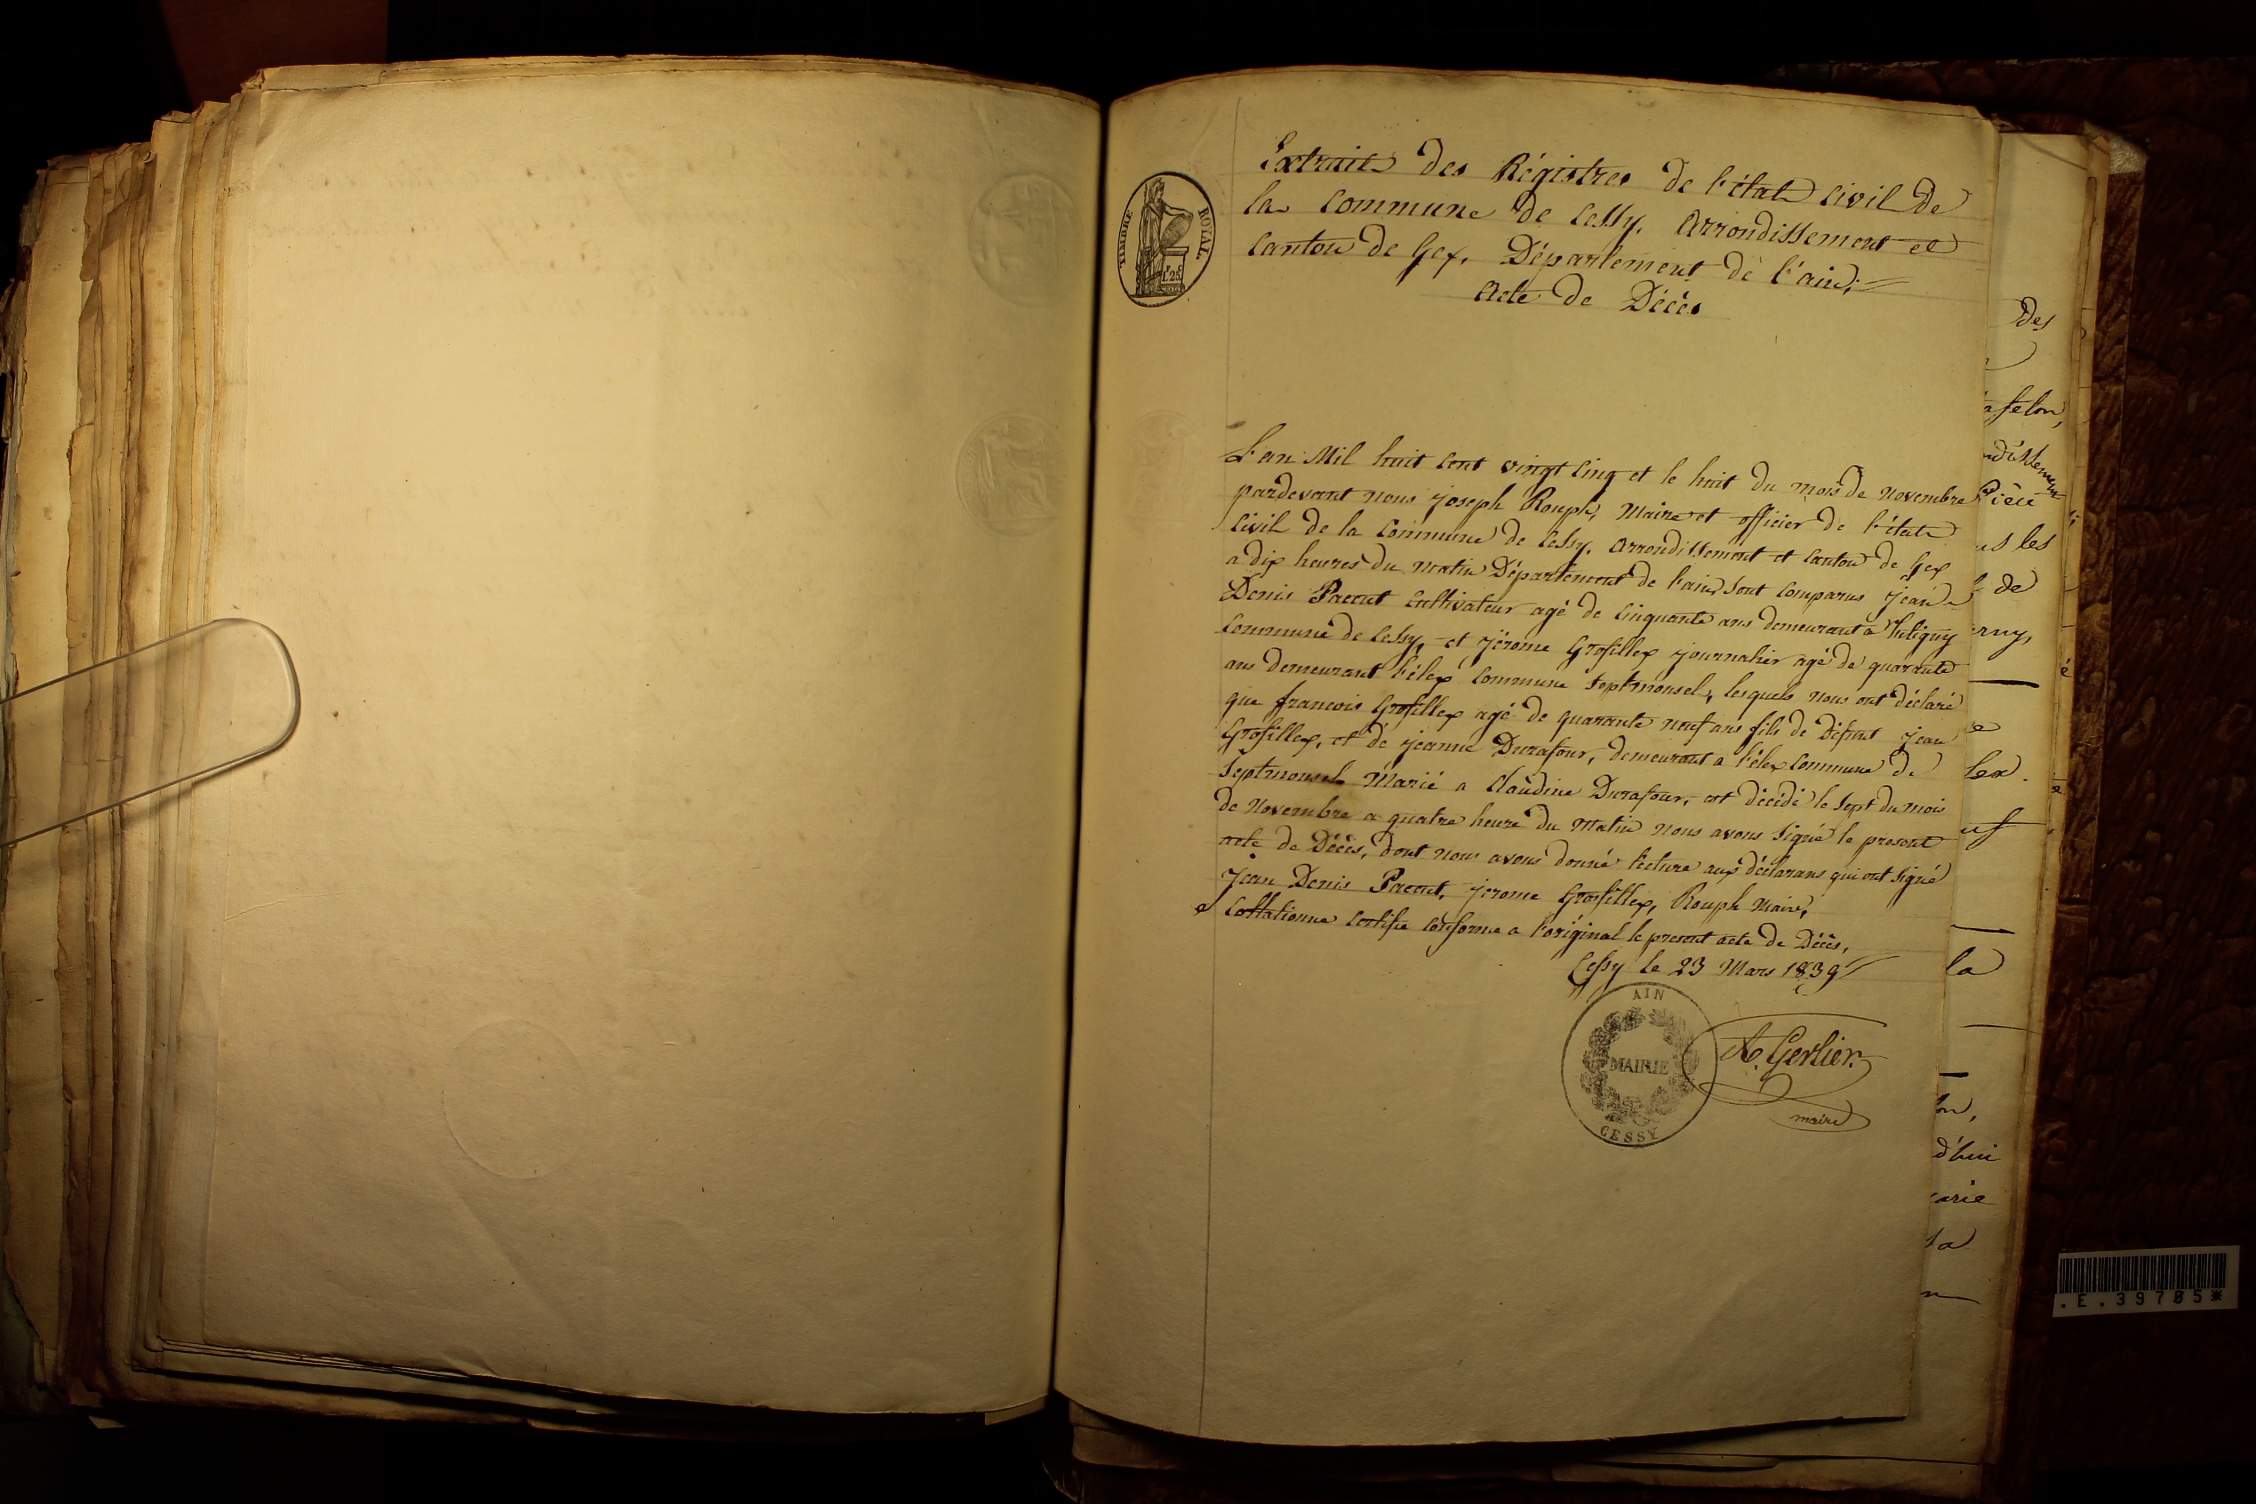 TIMBRE ROYAL
1f 25c
Extrait des Régistres de l'état civil de
la Commune de Cessy. Arrondissement et
Canton de Gex. Département de l'ain,
Acte de Décès
L'an Mil huit Cent vingt Cinq et le huit du mois de Novembre
pardevant nous joseph Rouph, Maire et officier de l'état
Civil de la Commune de Cessy. Arrondissement et Canton de Gex
a dix heures du matin Département de l'ain, Sont Comparus Jean
Denis Pacout Cultivateur agé de Cinquante ans demeurant a
Commune de Cessy, et jérome Grosillex journalier agé de quarante
ans demeurant l'élex Commune Septmonsel, lesquels nous ont déclaré
que francois Grosillex agé de quarante neuf ans fils de Défunt jean
Grosillex, et de jeanne Durafour, demeurant a l'élex Commune de
Septmonsel Marié a Claudine Durafour, est décédé le Sept du mois
de Novembre a quatre heure du Matin nous avons Signé le présent
acte de Décès, dont nous avons donné lecture aux déclarans qui ont Signé
Jean Denis Pacout, jerome Grosillex, Rouph Maire,
Collationné Certifié Conforme a l'original le présent acte de Décès,
Cessy le 23 Mars 1839
AIN
MAIRIE
CESSY
A. Gerlier
maire
des
ndissement
us les
de
lex.
uf
la
d'hui
arie
la
.E.39705*